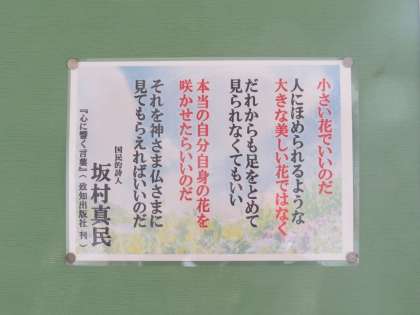 小さい花でいいのだ
人にほめられるような
大きな美しい花ではなく
だれからも足をとめて
見られなくてもいい
本当の自分自身の花を
咲かせたらいいのだ
それを神さま仏さまに
見てもらえればいいのだ
国民的詩人
坂村真民
『心に響く言葉』(致知出版社 刊)